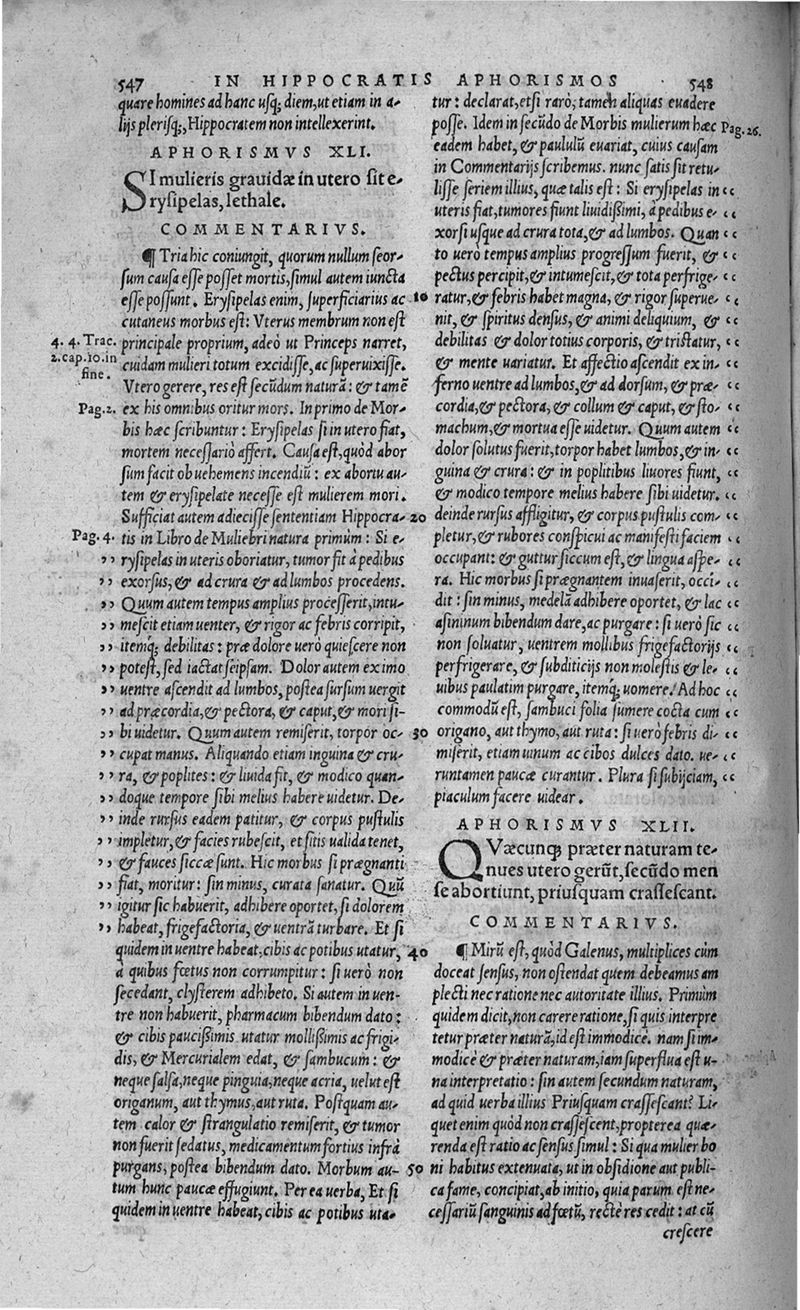 547 IN HIPPOCRATIS APHORISMOS 548
quare homines ad hanc usq; diem, ut etiam in a-
lijs plerisq;, Hippocratem non intellexerint.
APHORISMVS XLI.
SI mulieris grauidæ in utero sit e-
rysipelas, lethale.
COMMENTARIVS.
¶ Tria hic coniungit, quorum nullum seor-
sum causa esse posset mortis, simul autem iuncta
esse possunt. Erysipelas enim, superficiarius ac
cutaneus morbus est: Vterus membrum non est
principale proprium, adeò ut Princeps narret,
cuidam mulieri totum excidisse, ac superuixisse.
Vtero gerere, res est secũdum naturã: & tamẽ
ex his omnibus oritur mors. In primo de Mor-
bis hæc scribuntur: Erysipelas si in utero fiat,
mortem necessariò affert. Causa est, quòd abor
sum facit ob uehemens incendiũ: ex abortu au-
tem & erysipelate necesse est mulierem mori.
Sufficiat autem adiecisse sententiam Hippocra-
tis in Libro de Muliebri natura primùm: Si e-
rysipelas in uteris oboriatur, tumor fit à pedibus
exorsus, & ad crura & ad lumbos procedens.
Quum autem tempus amplius processerit, intu-
mescit etiam uenter, & rigor ac febris corripit,
itemq; debilitas: præ dolore uerò quiescere non
potest, sed iactat seipsam. Dolor autem ex imo
uentre ascendit ad lumbos, postea sursum uergit
ad præcordia, & pectora, & caput, & mori si-
bi uidetur. Quum autem remiserit, torpor oc-
cupat manus. Aliquando etiam inguina & cru-
ra, & poplites: & liuida fit, & modico quan-
doque tempore sibi melius habere uidetur. De-
inde rursus eadem patitur, & corpus pustulis
impletur, & facies rubescit, et sitis ualida tenet,
& fauces siccæ sunt. Hic morbus si prægnanti
fiat, moritur: sin minus, curata sanatur. Quũ
igitur sic habuerit, adhibere oportet, si dolorem
habeat, frigefactoria, & uentrã turbare. Et si
quidem in uentre habeat, cibis ac potibus utatur,
à quibus fœtus non corrumpitur: si uerò non
secedant, clysterem adhibeto. Si autem in uen-
tre non habuerit, pharmacum bibendum dato:
& cibis paucissimis utatur mollissimis ac frigi-
dis, & Mercurialem edat, & sambucum: &
neque salsa, neque pinguia, neque acria, uelut est
origanum, aut thymus, aut ruta. Postquam au-
tem calor & strangulatio remiserit, & tumor
non fuerit sedatus, medicamentum fortius infrà
purgans, postea bibendum dato. Morbum au-
tum hunc paucæ effugiunt. Per ea uerba, Et si
quidem in uentre habeat, cibis ac potibus uta-
4. 4. Trac.
2. cap. 10. in
fine.
Pag. 2.
Pag. 4.
10
20
30
40
50
tur: declarat, etsi rarò, tamen aliquas euadere
posse. Idem in secũdo de Morbis mulierum hæc
eadem habet, & paululũ euariat, cuius causam
in Commentarijs scribemus. nunc satis sit retu-
lisse seriem illius, quæ talis est: Si erysipelas in
uteris fiat, tumores fiunt liuidissimi, à pedibus e-
xorsi usque ad crura tota, & ad lumbos. Quan
to uerò tempus amplius progressum fuerit, &
pectus percipit, & intumescit, & tota perfrige-
ratur, & febris habet magna, & rigor superue-
nit, & spiritus densus, & animi deliquium, &
debilitas & dolor totius corporis, & tristatur,
& mente uariatur. Et affectio ascendit ex in-
ferno uentre ad lumbos, & ad dorsum, & præ-
cordia, & pectora, & collum & caput, & sto-
machum, & mortua esse uidetur. Quum autem
dolor solutus fuerit, torpor habet lumbos, & in-
guina & crura: & in poplitibus liuores fiunt,
& modico tempore melius habere sibi uidetur.
deinde rursus affligitur, & corpus pustulis com-
pletur, & rubores conspicui ac manifesti faciem
occupant: & guttur siccum est, & lingua aspe-
ra. Hic morbus si prægnantem inuaserit, occi-
dit: sin minus, medelã adhibere oportet, & lac
asininum bibendum dare, ac purgare: si uerò sic
non soluatur, uentrem mollibus frigefactorijs
perfrigerare, & subditicijs non molestis & le-
uibus paulatim purgare, itemq; uomere. Ad hoc
commodũ est, sambuci folia sumere cocta cum
origano, aut thymo, aut ruta: si uerò febris di-
miserit, etiam uinum ac cibos dulces dato. ue-
runtamen paucæ curantur. Plura si subijciam,
piaculum facere uidear.
Pag. 26.
APHORISMVS XLII.
QVæcunq; præter naturam te-
nues utero gerũt, secũdo men
se abortiunt, priusquam crassescant.
COMMENTARIVS.
¶ Mirũ est, quòd Galenus, multiplices cùm
doceat sensus, non ostendat quem debeamus am
plecti nec ratione nec autoritate illius. Primùm
quidem dicit, non carere ratione, si quis interpre
tetur præter naturã, id est immodicè. nam si im-
modicè & præter naturam, iam superflua est u-
na interpretatio: sin autem secundum naturam,
ad quid uerba illius Priusquam crassescant? Li-
quet enim quòd non crassescent, propterea quæ-
renda est ratio ac sensus simul: Si qua mulier bo
ni habitus extenuata, ut in obsidione aut publi-
ca fame, concipiat, ab initio, quia parum est ne-
cessariũ sanguinis ad fœtũ, rectè res cedit: at cũ
crescere